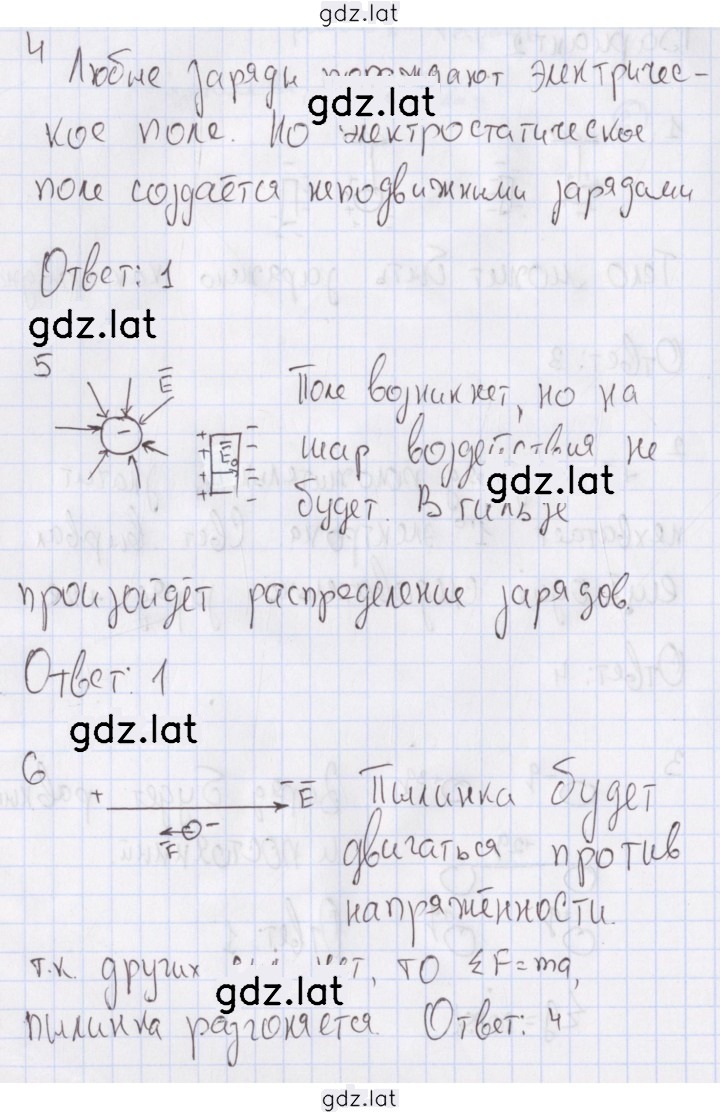 gdz.lat
4 Любые заряды порождают электричес-
gdz.lat
кое поле. Но электростатическое
поле создаётся неподвижными зарядами
Ответ: 1
gdz.lat
5
E Поле возникнет, но на
- + E₀ - шар воздействия не
gdz.lat
будет. В гильзе
произойдёт распределение зарядов.
Ответ: 1
gdz.lat
6
+ - E Пылинка будет
F - двигаться против
напряжённости.
т.к. других нет, то ΣF=ma,
gdz.lat
пылинка разгоняется. Ответ: 4
gdz.lat